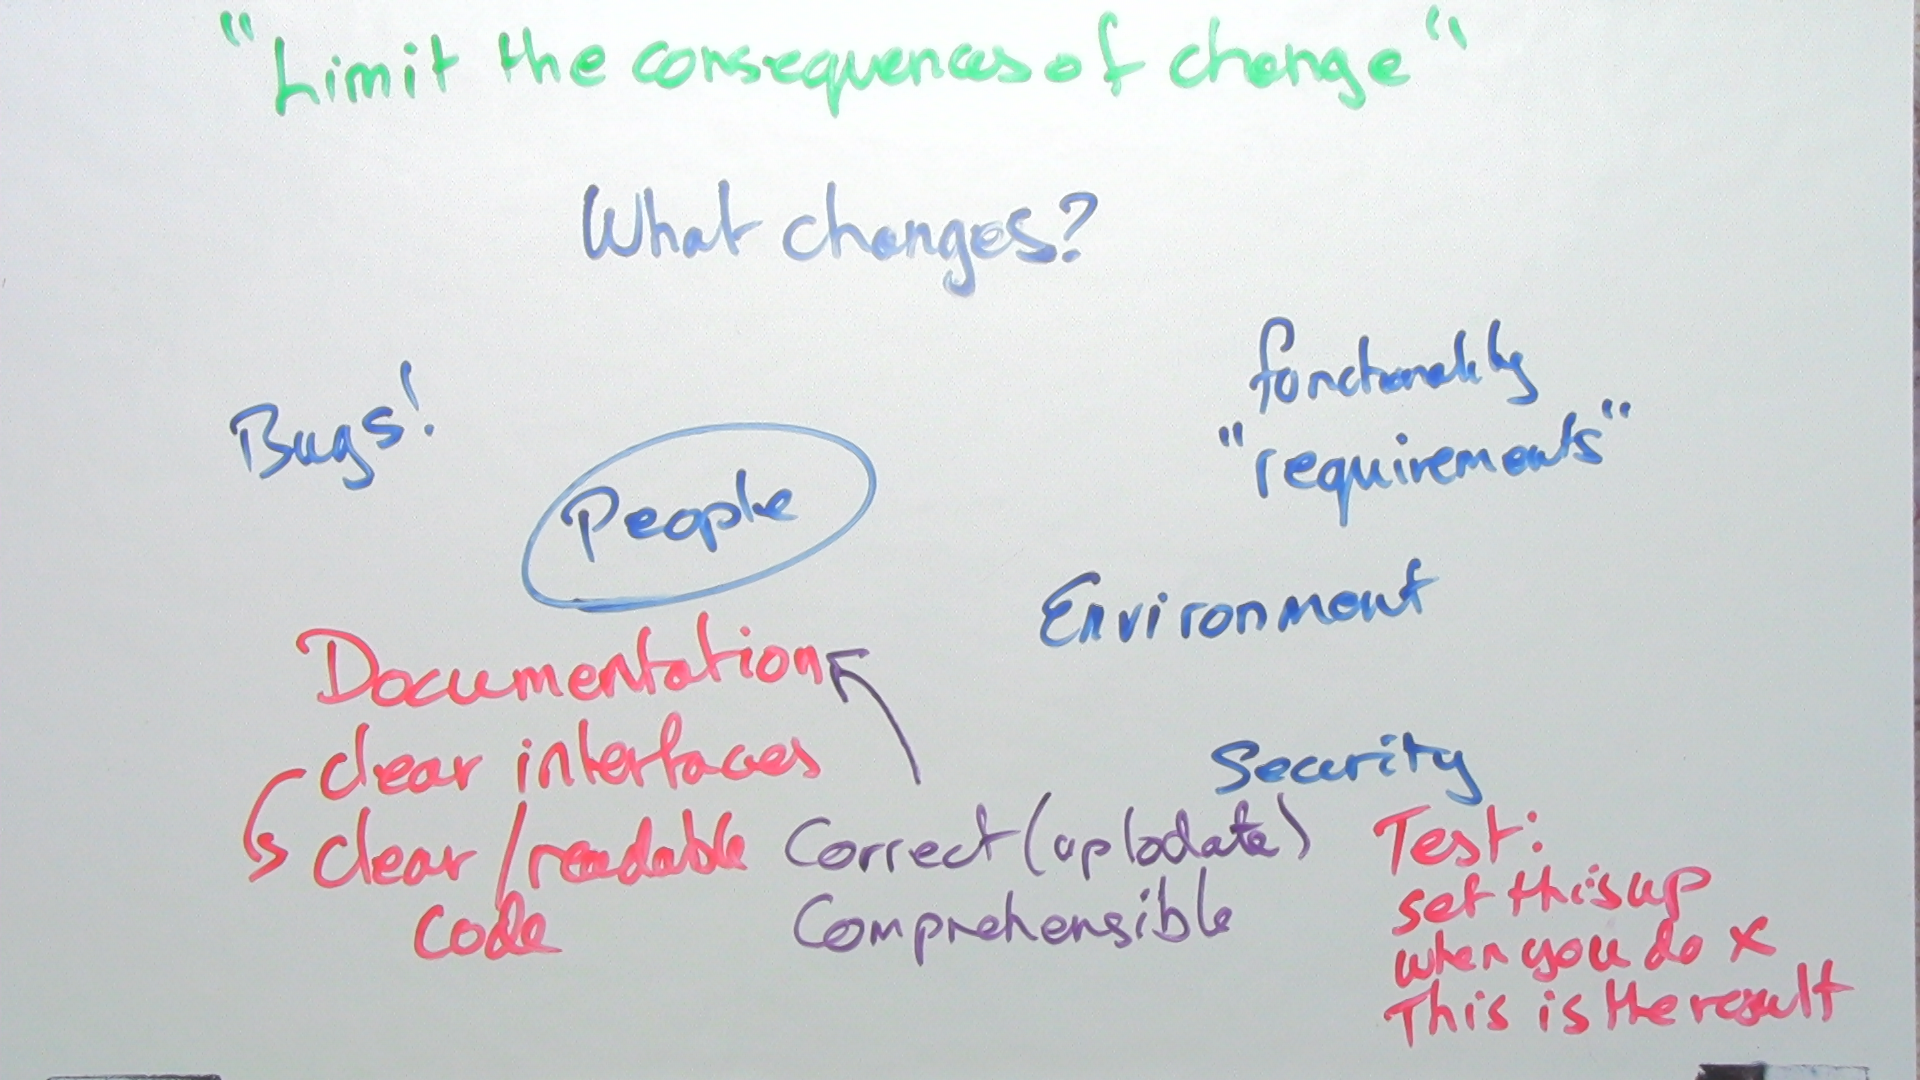 "Limit the consequences of change"
What changes?
Bugs!
People
functionality
"requirements"
Environment
Documentation
clear interfaces
clear/readable
code
Security
Correct (uptodate)
Comprehensible
Test:
set this up
when you do x
This is the result